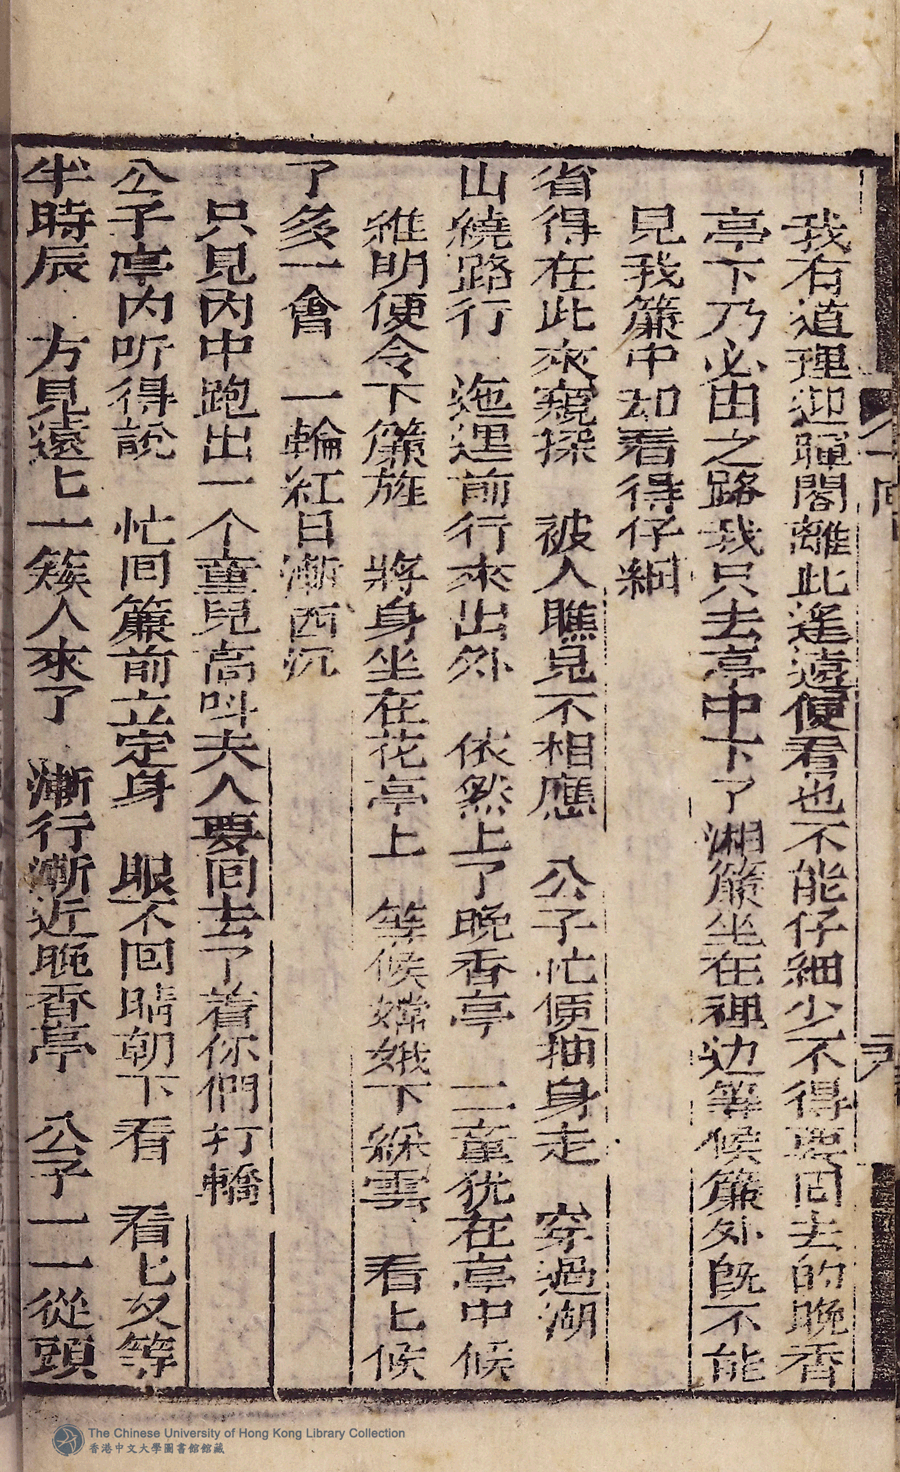 我有道理迎暉閣離此遙遠便看也不能仔細少不得要囘去的晚香
亭下乃必由之路我只去亭中下了湘簾坐在裡边等候簾外既不能
見我簾中却看得仔細
省得在此來窺探　被人瞧見不相應　公子忙便抽身走　穿過湖
山繞路行　迤逞前行來出外　依然上了晚香亭　二童犹在亭中候
維明便令下簾旌　將身坐在花亭上　等候嫦娥下綵雲　看匕候
了多一會　一輪紅日漸西沉
只見內中跑出一个童兒高叫夫人要囘去了着你們打轎
公子亭內听得說　忙囘簾前立定身　眼不回睛朝下看　看匕又等
半時辰　方見遠匕一簇人來了　漸行漸近晚香亭　公子一一從頭
The Chinese University of Hong Kong Library Collection
香港中文大學圖書館館藏